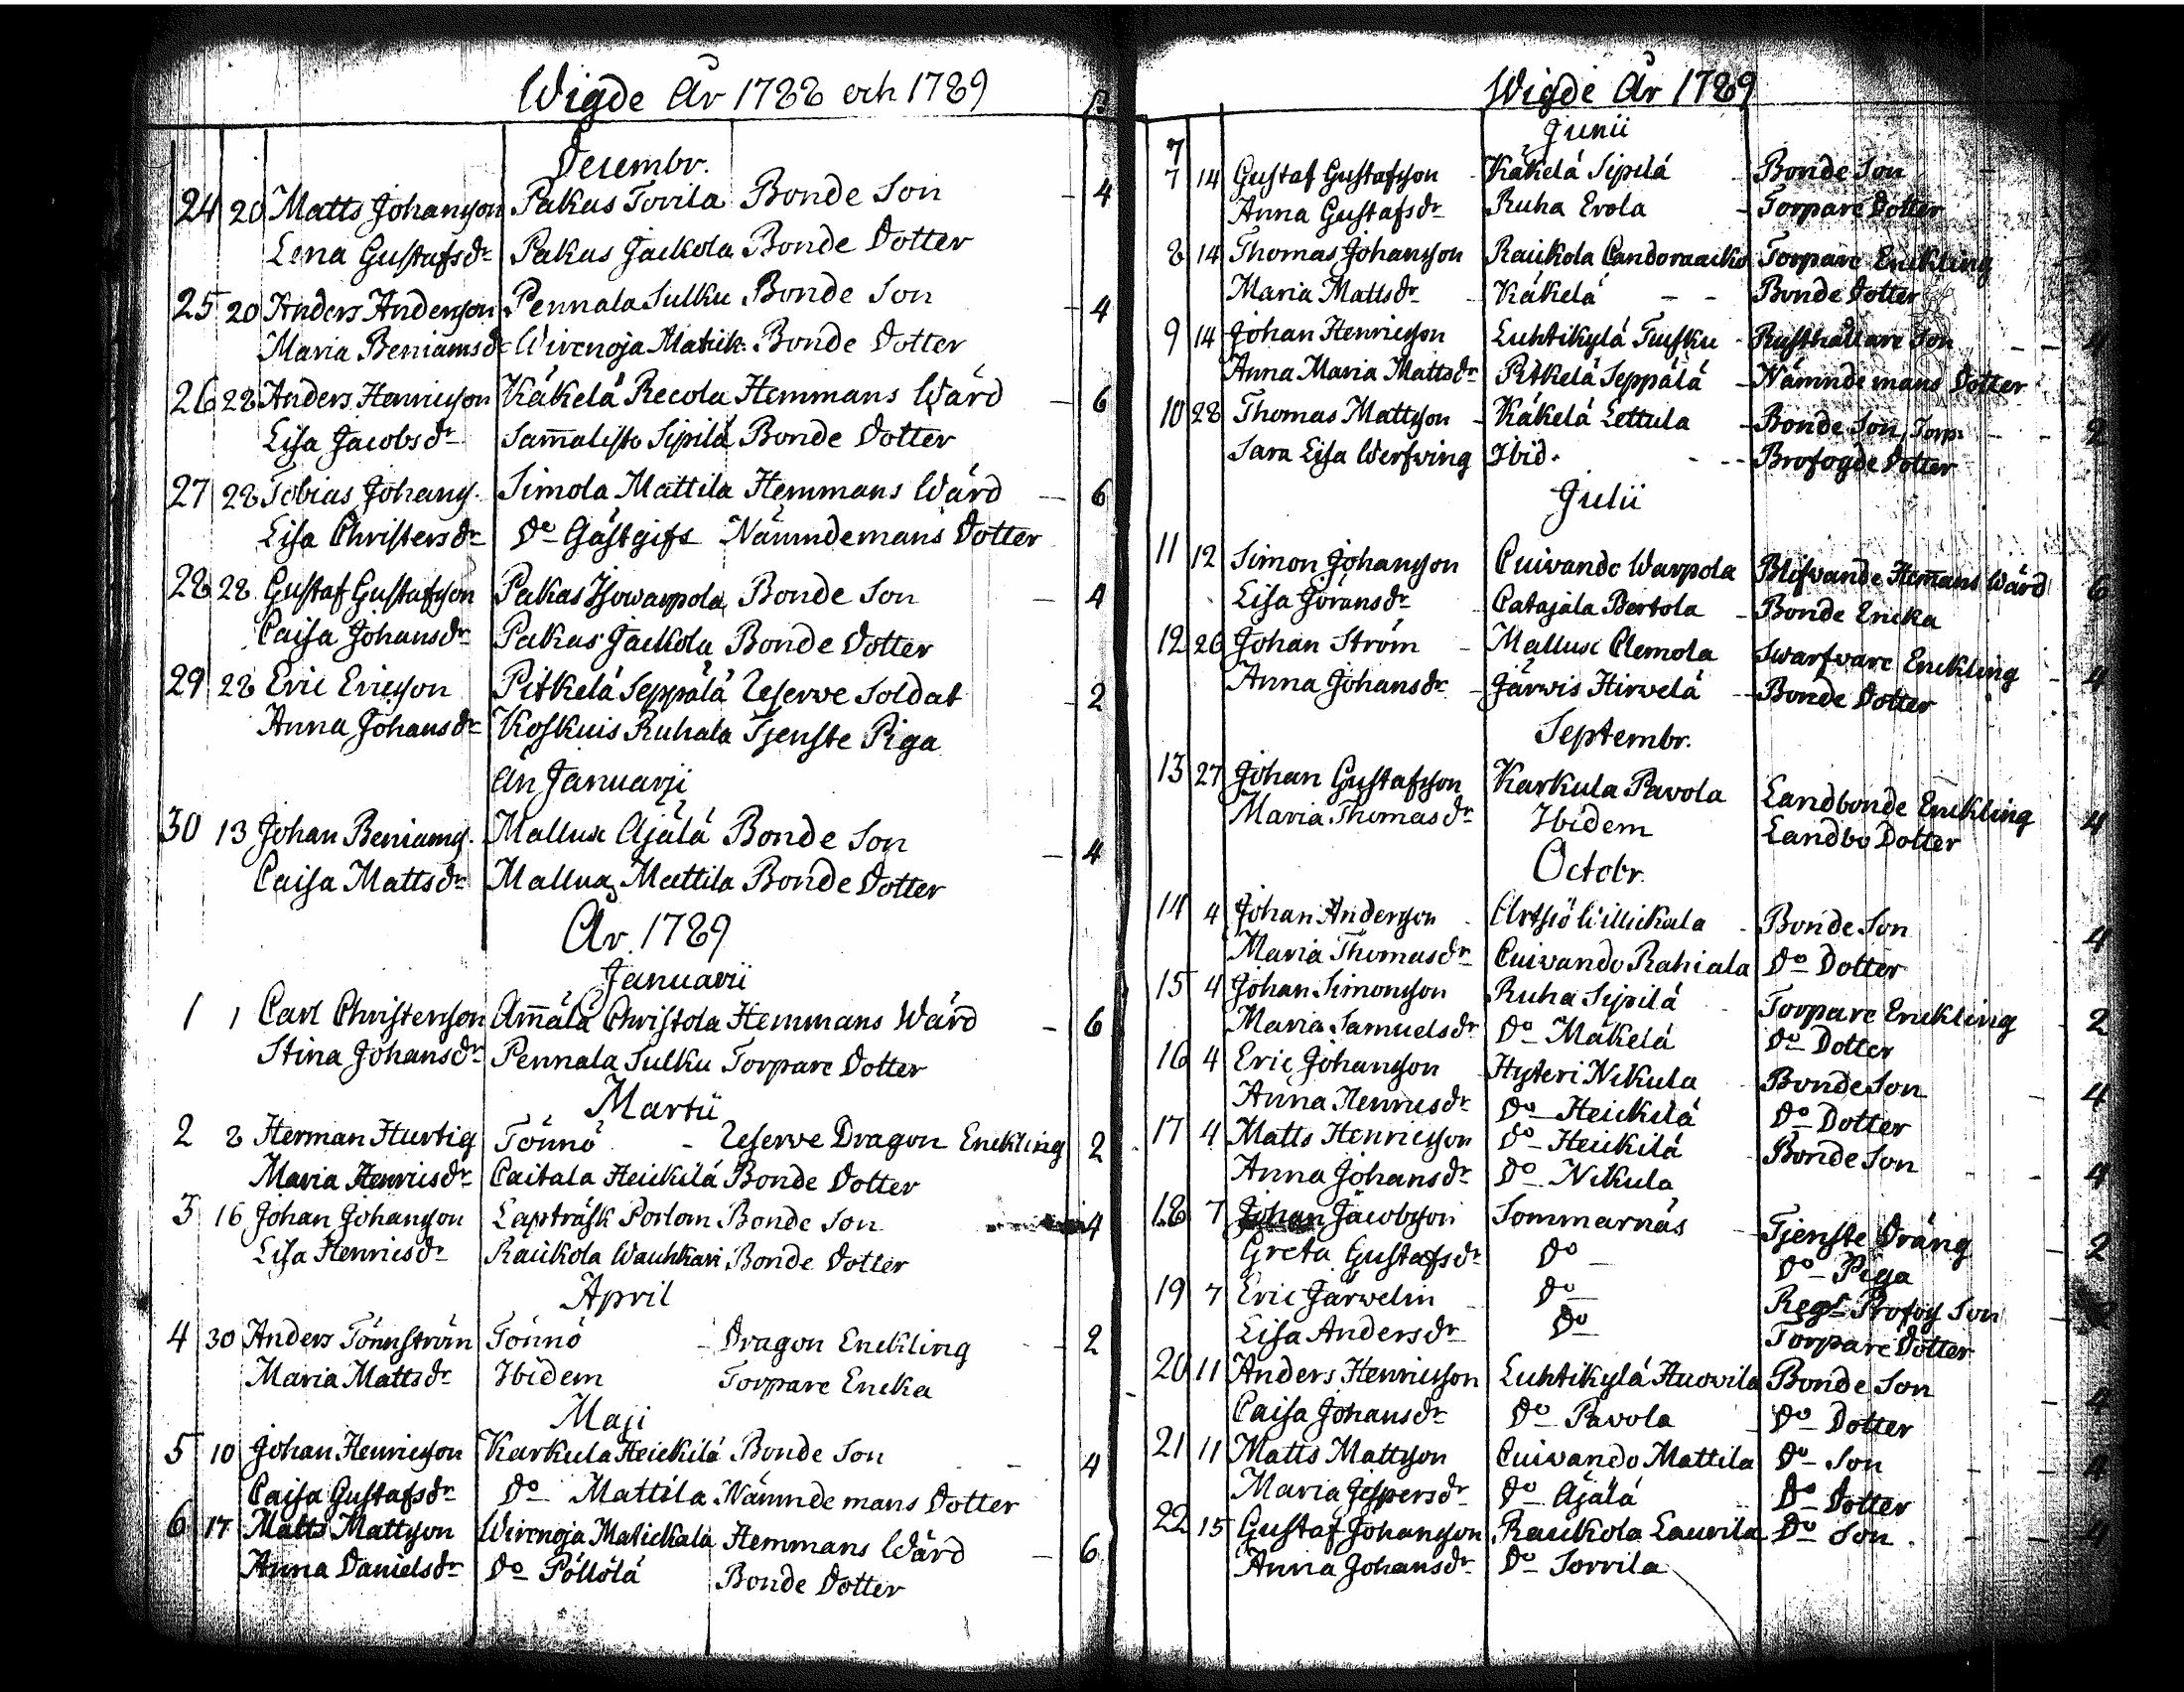 Wigde År 1788 och 1789
Decembr.
24 20 Matts Johansson Pakas Tovila Bonde Son 4
Lena Gustafsdr Pakas Jackola Bonde Dotter
25 20 Anders Andersson Pennala Sulku Bonde Son 4
Maria Beniamsdr Wirenoja Matick. Bonde Dotter
26 28 Anders Henricsson Käkelä Recola Hemmans Wärd 6
Lisa Jacobsdr Sam̄alisto Sipilä Bonde Dotter
27 28 Tobias Johans. Simola Mattila Hemmans Wärd 6
Lisa Christersdr Do Gästgifs Nämndemans Dotter
28 28 Gustaf Gustafsson Pakas Isowarpola Bonde Son 4
Caisa Johansdr Pakas Jackola Bonde Dotter
29 28 Eric Ericsson Pitkelä Seppälä Reserve Soldat 2
Anna Johansdr Koskuis Ruhala Tjenste Piga
An Januarji
30 13 Johan Beniams. Mallux Ajälä Bonde Son 4
Caisa Mattsdr Mallus Mattila Bonde Dotter
År 1789
Januarii
1 1 Carl Christersson Am̄älä Christola Hemmans Wärd 6
Stina Johansdr Pennala Sulku Torpare Dotter
Martii
2 8 Herman Hurtig Tönnö Reserve Dragon Enckling 2
Maria Henricsdr Caitala Heickilä Bonde Dotter
3 16 Johan Johansson Lapträsk Porlom Bonde Son 4
Lisa Henricsdr Raickola Wauhkari Bonde Dotter
April
4 30 Anders Tönnström Tönnö Dragon Enckling 2
Maria Mattsdr Ibidem Torpare Encka
Maji
5 10 Johan Henricsson Karkula Heickilä Bonde Son 4
Caisa Gustafsdr Do Mattila Nämndemans Dotter
6 17 Matts Mattsson Wirenoja Matickala Hemmans Wärd 6
Anna Danielsdr Do Pöllölä Bonde Dotter
Wigde År 1789
Junii
7
7 14 Gustaf Gustafsson Käkelä Sipilä Bonde Son
Anna Gustafsdr Ruha Erola Torpare Dotter
8 14 Thomas Johansson Raickola Torpare Enckling
Maria Mattsdr Käkelä Bonde Dotter
9 14 Johan Henricsson Luhtikylä Tuusku Rusthållare Son 4
Anna Maria Mattsdr Pitkelä Seppälä Nämndemans Dotter
10 28 Thomas Mattsson Käkelä Lettula Bonde Son, Torp. 2
Sara Lisa Werfving Ibid. Brofogde Dotter
Julii
11 12 Simon Johansson Cuivando Warpola Blifvande Hem̄ans Wärd 6
Lisa Göransdr Catajala Bertola Bonde Encka
12 26 Johan Ström Mallux Clemola Swarfvare Enckling 4
Anna Johansdr Järwis Hirvelä Bonde Dotter
Septembr.
13 27 Johan Gustafsson Karkula Pavola Landbonde Enckling 4
Maria Thomasdr Ibidem Landbo Dotter
Octobr.
14 4 Johan Andersson Artsiö Willickala Bonde Son 4
Maria Thomasdr Cuivando Rahiala Do Dotter
15 4 Johan Simonsson Ruha Sipilä Torpare Enckling 2
Maria Samuelsdr Do Mäkelä Do Dotter
16 4 Eric Johansson Hyteri Nikula Bonde Son 4
Anna Henricsdr Do Heickilä Do Dotter
17 4 Matts Henricsson Do Heickilä Bonde Son 4
Anna Johansdr Do Nikula
18 7 Johan Jacobsson Sommarnäs Tjenste Dräng 2
Greta Gustafsdr Do Do Piga
19 7 Eric Järwelin Do Regts Profos Son
Lisa Andersdr Do Torpare Dotter
20 11 Anders Henricsson Luhtikylä Huovila Bonde Son 4
Caisa Johansdr Do Pavola Do Dotter
21 11 Matts Mattsson Cuivando Mattila Do Son 4
Maria Jespersdr Do Äjälä Do Dotter
22 15 Gustaf Johansson Raickola Laurila Do Son 4
Anna Johansdr Do Torrila